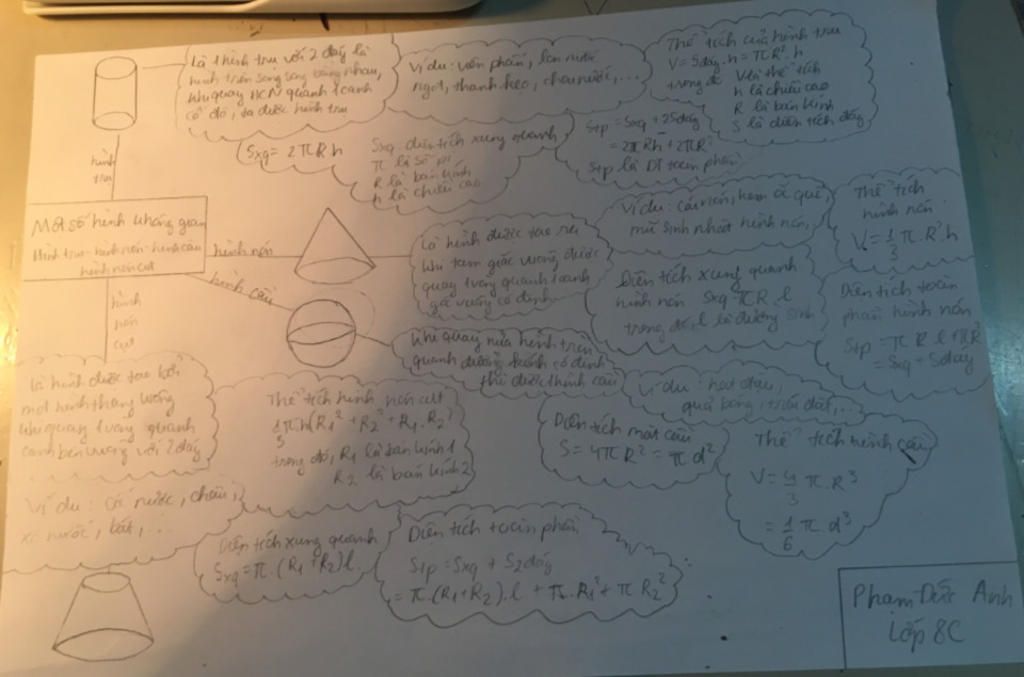 Là 1 hình trụ với 2 đáy là
hình tròn song song bằng nhau,
khi quay HCN quanh 1 cạnh
cố đó, ta được hình trụ
Ví dụ: viên phấn, lon nước
ngọt, thanh kẹo, chai nước,...
Thể tích của hình trụ
V = Sđáy.h = πR².h
trong đó V là thể tích
h là chiều cao
R là bán kính
S là diện tích đáy
Sxq = 2πRh
Sxq diện tích xung quanh
π là số pi
R là bán kính
h là chiều cao
Stp = Sxq + 2Sđáy
= 2πRh + 2πR²
Stp là DT toàn phần
hình
trụ
Một số hình không gian
Hình trụ - hình nón - hình cầu
hình nón cụt
hình nón
Là hình được tạo ra
khi tam giác vuông được
quay 1 vòng quanh 1 cạnh
góc vuông cố định
Ví dụ: cái nón, kem ốc quế,
mũ sinh nhật hình nón,
Thể tích
hình nón
V = 1/3 π.R²h
Diện tích xung quanh
hình nón Sxq = πR.l
trong đó, l là đường sinh
Diện tích toàn
phần hình nón
Stp = πRl + πR²
= Sxq + Sđáy
hình cầu
Khi quay nửa hình tròn
quanh đường kính cố định
thì được 1 hình cầu
Ví dụ: hạt đậu,
quả bóng, trái đất,...
Diện tích mặt cầu
S = 4πR² = πd²
Thể tích hình cầu
V = 4/3 π.R³
= 1/6 πd³
hình
nón
cụt
Là hình được tạo bởi
một hình thang vuông
khi quay 1 vòng quanh
cạnh bên vuông với 2 đáy
Thể tích hình nón cụt
1/3 πh(R₁² + R₂² + R₁.R₂)
trong đó, R₁ là bán kính 1
R₂ là bán kính 2
Ví dụ: cốc nước, chậu,
xô nước, bát,...
Diện tích xung quanh
Sxq = π.(R₁+R₂)l.
Diện tích toàn phần
Stp = Sxq + S2đáy
= π.(R₁+R₂).l + π.R₁² + πR₂²
Phạm Đức Anh
Lớp 8C